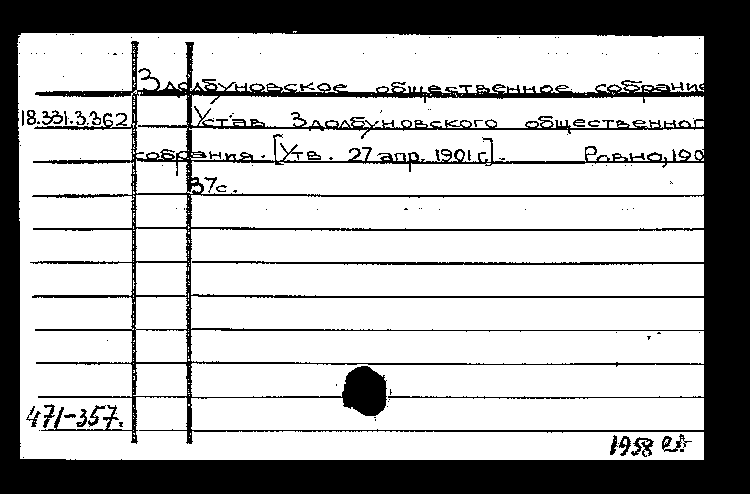 Здолбуновское общественное собрание
18.331.3.362 Устав Здолбуновского общественног
собрания. [Утв. 27 апр. 1901 г.]. Ровно, 190
37с.
471-357.
1958